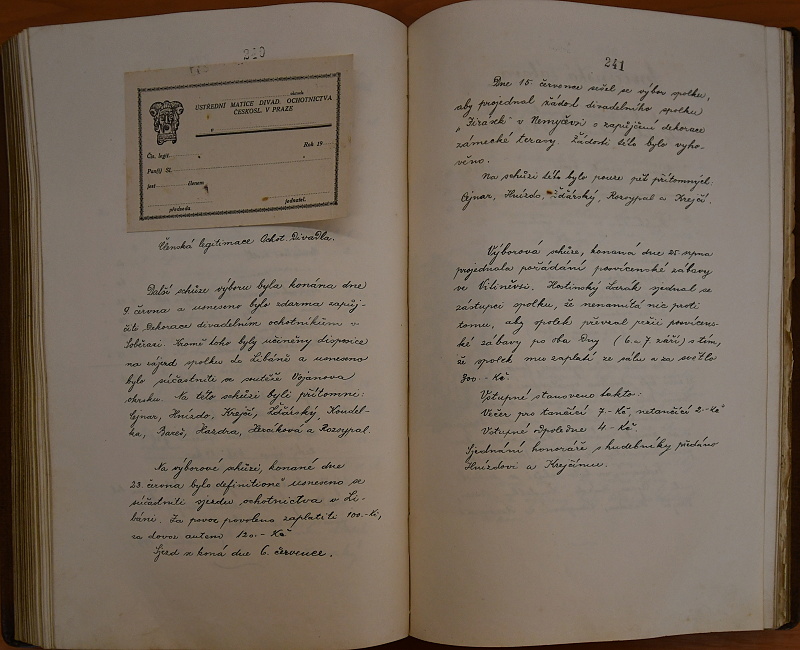 240
okrsek
ÚSTŘEDNÍ MATICE DIVAD. OCHOTNICTVA
ČESKOSL. V PRAZE
Čís. legit.
Rok 19
Pan(í) Sl.
jest členem
předseda
jednatel.
Členská legitimace Ochot. Divadla.
Další schůze výboru byla konána dne
9. června a usneseno bylo zdarma zapůj-
čiti dekorace divadelním ochotníkům v
Soběrazi. Kromě toho byly učiněny disposice
na zájezd spolku do Libáně a usneseno
bylo súčastniti se soutěže Vojanova
okrsku. Na této schůzi byli přítomni:
Cejnar, Hnízdo, Krejčí, Žďárský, Koudel-
ka, Bareš, Hazdra, Heráková a Rozsypal.
Na výborové schůzi, konané dne
23. června bylo definitivně usneseno se
súčastniti sjezdu ochotnictva v Li-
báni. Za povoz povoleno zaplatiti 100.-Kč,
za dovoz autem 120.- Kč
Sjezd se koná dne 6. července.
241
Dne 15. července sešel se výbor spolku,
aby projednal žádost divadelního spolku
"Jirásek" v Nemyčevsi o zapůjčení dekorace
zámecké terasy. Žádosti této bylo vyho-
věno.
Na schůzi této bylo pouze pět přítomných:
Cejnar, Hnízdo, Žďárský, Rozsypal a Krejčí.
Výborová schůze, konaná dne 25. srpna
projednala pořádání posvícenské zábavy
ve Vitiněvsi. Hostinský Žarák sjednal se
zástupci spolku, že nenamítá nic proti
tomu, aby spolek převzal režii posvícen-
ské zábavy po oba dny (6. a 7. září) s tím,
že spolek mu zaplatí ze sálu a za světlo
300.- Kč.
Vstupné stanoveno takto:
Večer pro tančící 7.-Kč, netančící 2.-Kč
Vstupné odpoledne 4.- Kč.
Sjednání honoráře s hudebníky předáno
Hnízdovi a Krejčímu.